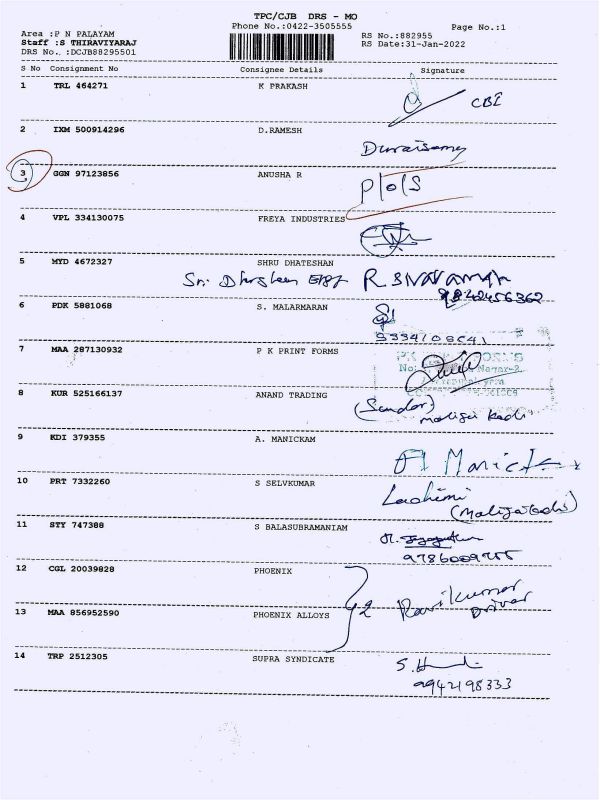 TPC/CJB DRS - MO
Phone No.:0422-3505555 Page No.:1
Area :P N PALAYAM
Staff :S THIRAVIYARAJ
DRS No. :DCJB88295501
RS No.:882955
RS Date:31-Jan-2022
S No Consignment No Consignee Details Signature
1 TRL 464271 K PRAKASH
CBE
2 IXM 500914296 D.RAMESH
Duraisamy
3 GGN 97123856 ANUSHA R
P/o/S
4 VPL 334130075 FREYA INDUSTRIES
5 MYD 4672327 SHRU DHATESHAN
Sri
6 PDK 5881068 S. MALARMARAN
7 MAA 287130932 P K PRINT FORMS
8 KUR 525166137 ANAND TRADING
9 KDI 379355 A. MANICKAM
A Manick
10 PRT 7332260 S SELVKUMAR
11 STY 747388 S BALASUBRAMANIAM
12 CGL 20039828 PHOENIX
2 Ravikumar
Driver
13 MAA 856952590 PHOENIX ALLOYS
14 TRP 2512305 SUPRA SYNDICATE
9942198333